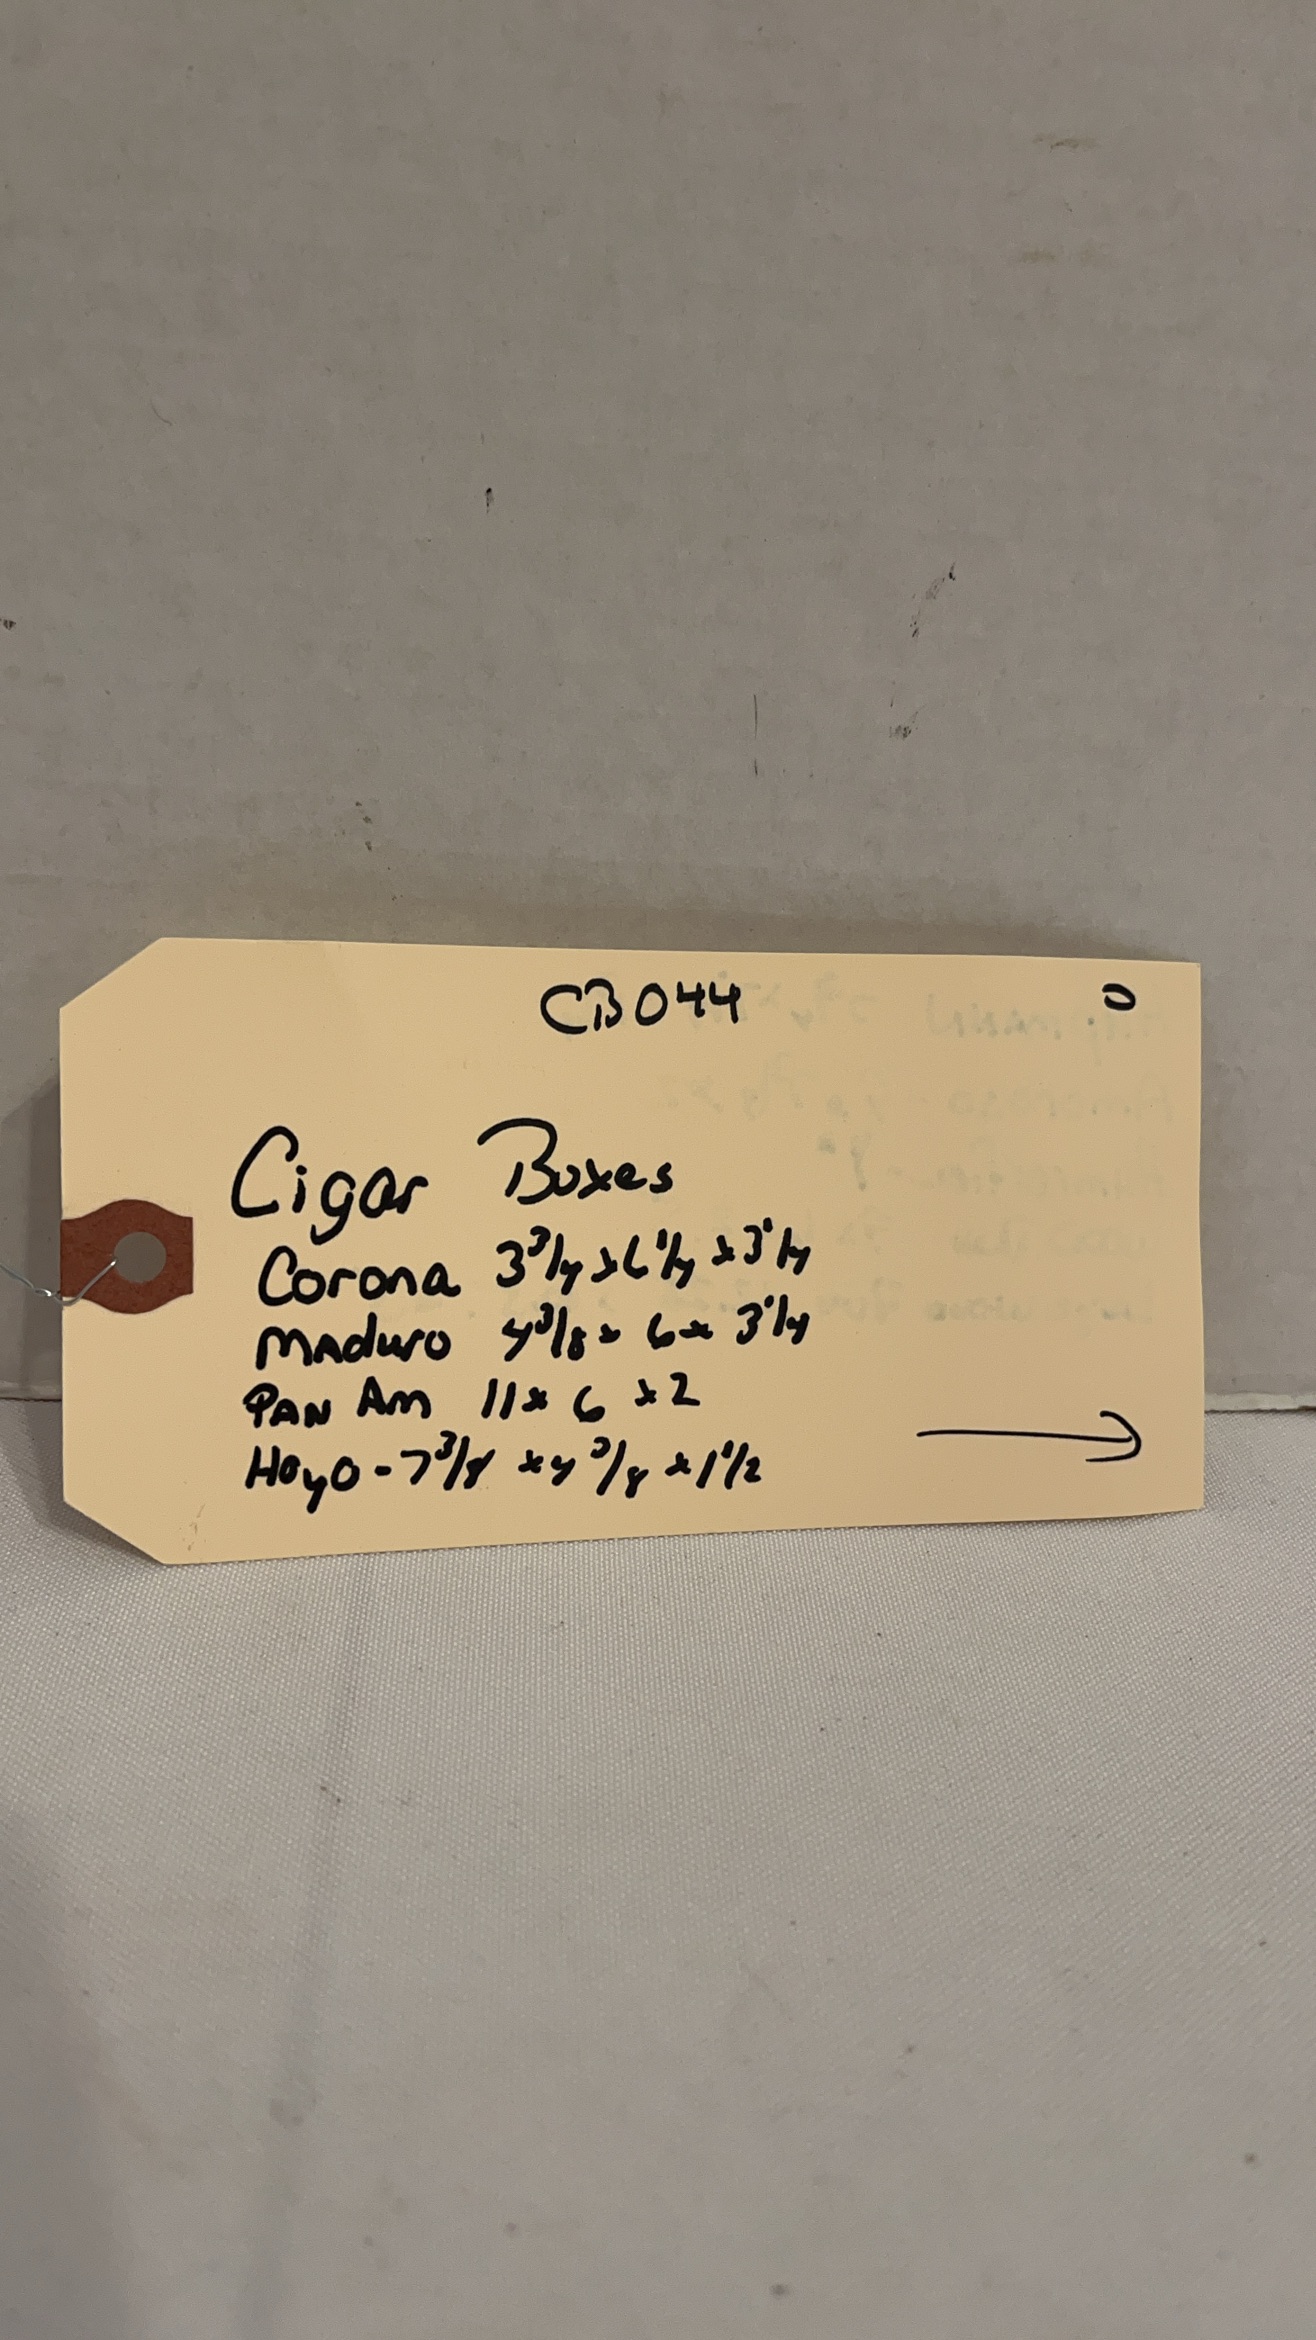 CB044 0
Cigar Boxes
Corona 3 3/4 x 6 1/4 x 3 1/4
Maduro 4 3/8 x 6 x 3 1/4
PAN Am 11 x 6 x 2
Hoyo - 7 3/8 x 4 3/8 x 1 1/2